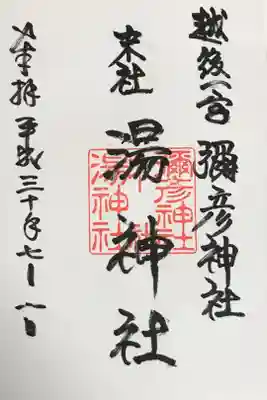 越後一宮 彌彦神社
末社
湯神社
奉拝 平成三十年七月一日
彌彦神社
末社
湯神社